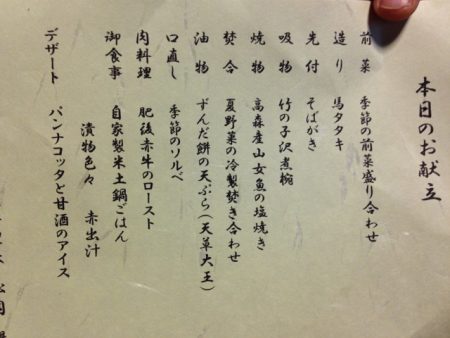 本日のお献立
前菜　季節の前菜盛り合わせ
造り　馬タタキ
先付　そばがき
吸物　竹の子沢煮椀
焼物　高森産山女魚の塩焼き
焚合　夏野菜の冷製焚き合わせ
油物　ずんだ餅の天ぷら(天草大王)
口直し　季節のソルベ
肉料理　肥後赤牛のロースト
御食事　自家製米土鍋ごはん
漬物色々　赤出汁
デザート　パンナコッタと甘酒のアイス